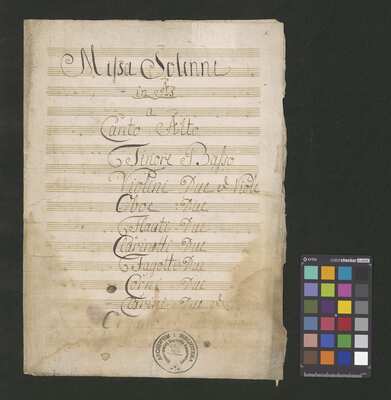 Missa Solenni
in
a
Canto Alto
Tenore Basso
Violini Due et Viole
Oboe Due
Flauti Due
Clarinetti Due
Fagotti Due
Corni Due
Clarini Due et
C